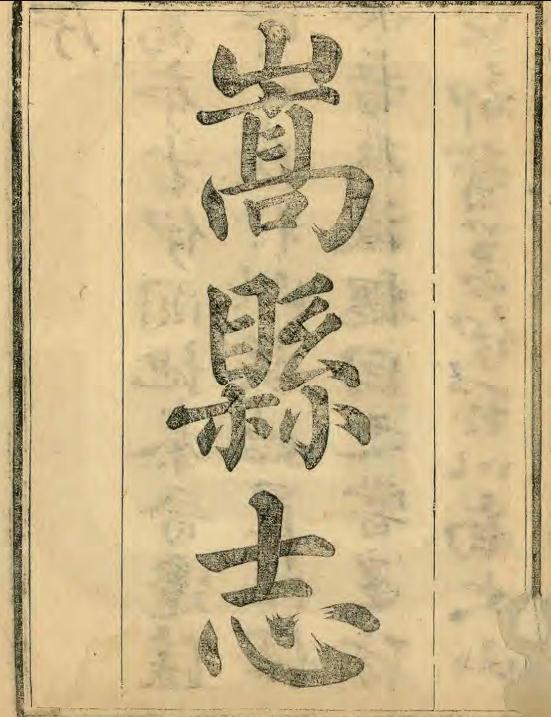 嵩縣志